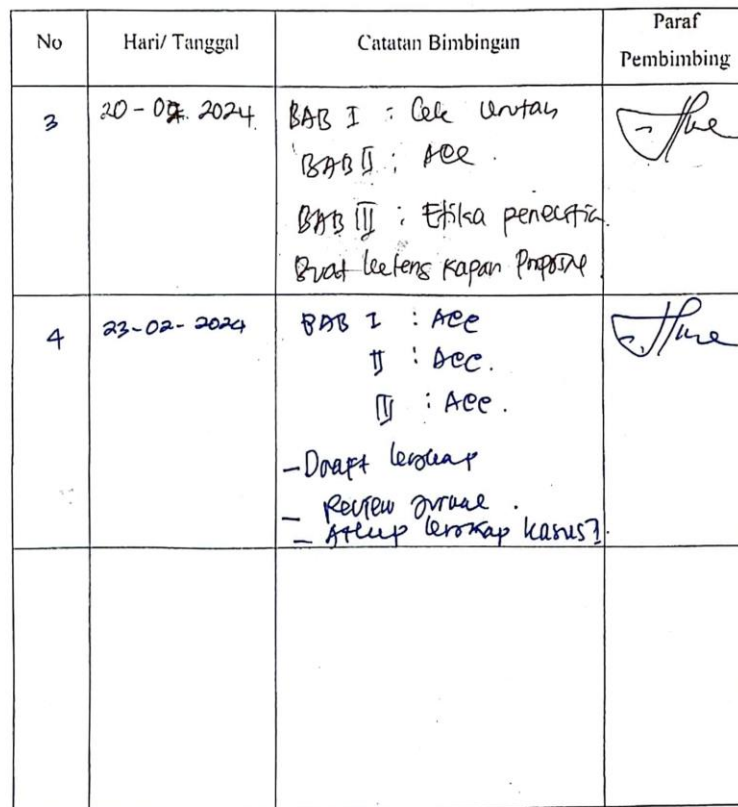 No Hari/ Tanggal Catatan Bimbingan Paraf
Pembimbing
3 20-02. 2024 BAB I : Cek urutan
BAB II : ACC.
BAB III : Etika penelitia
Buat Proposal
4 23-02-2024 BAB I : ACC
II : ACC.
III : ACC.
- Draft lengkap
- Review jurnal.
- lengkap kasus